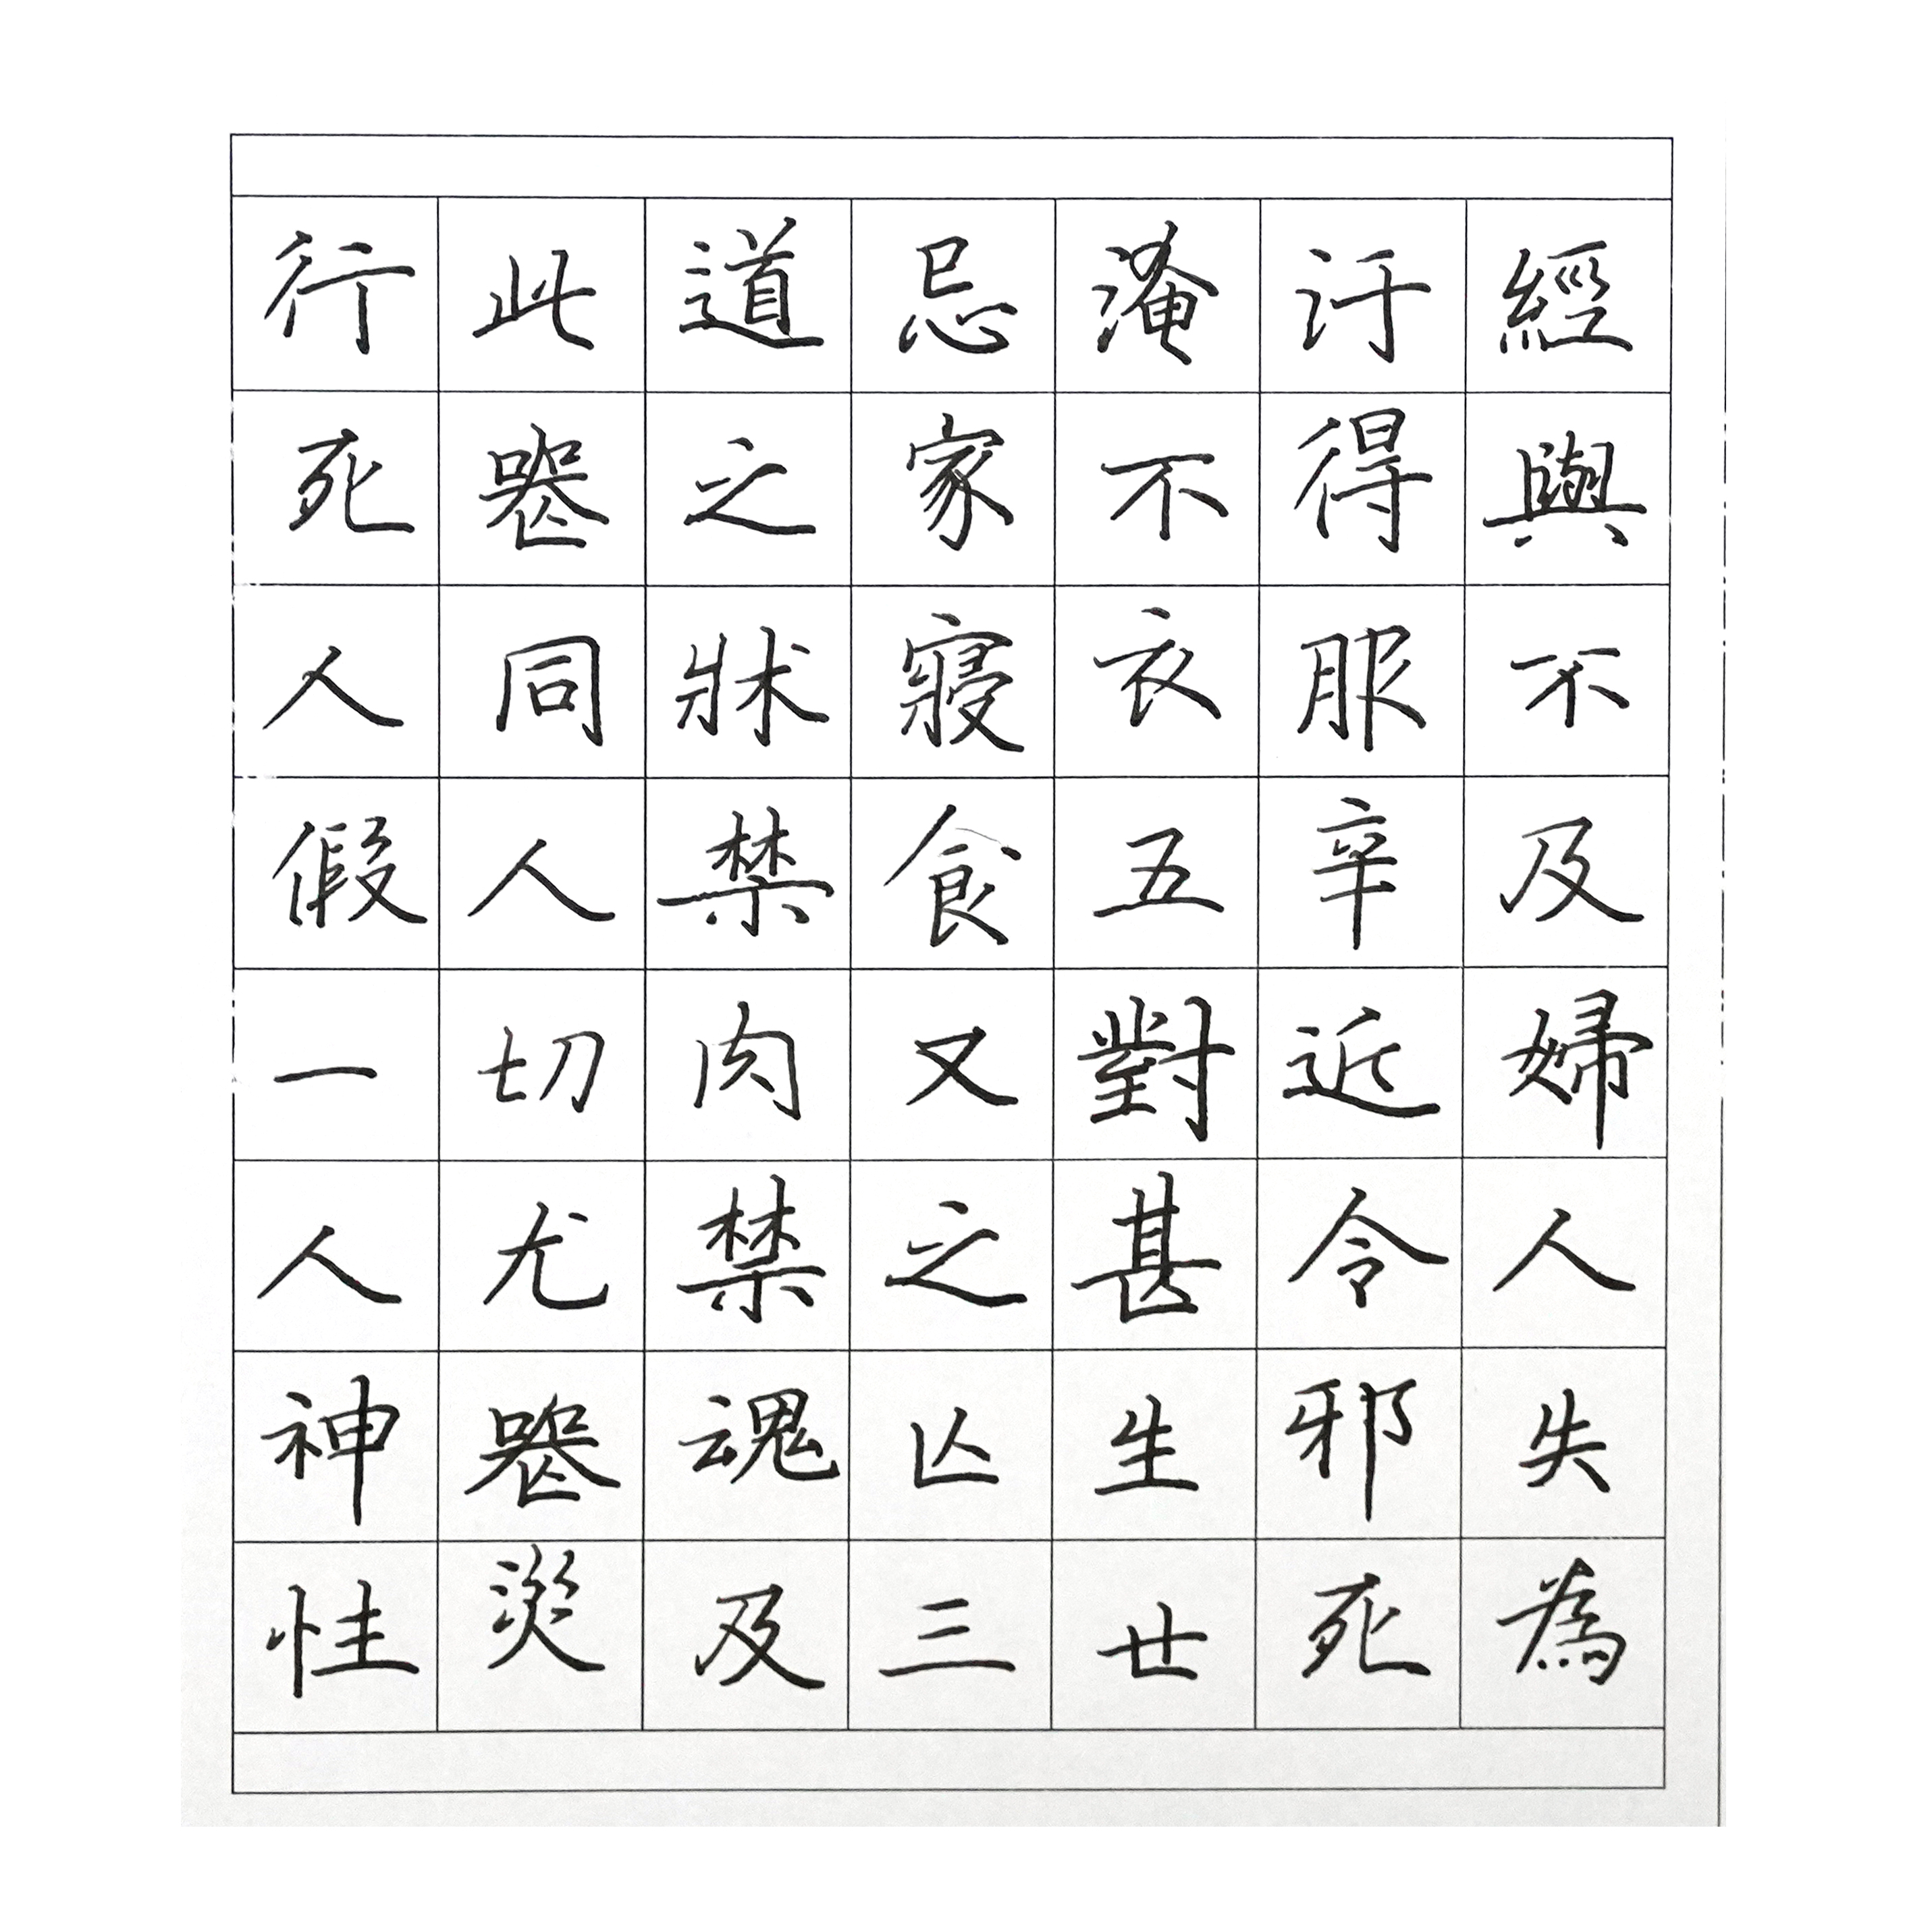 行此道忌淹汙經
死喪之家不得與
人同牀寢衣服不
假人禁食五辛及
一切肉又對近婦
人尤禁之甚令人
神喪魂亾生邪失
性災及三世死為